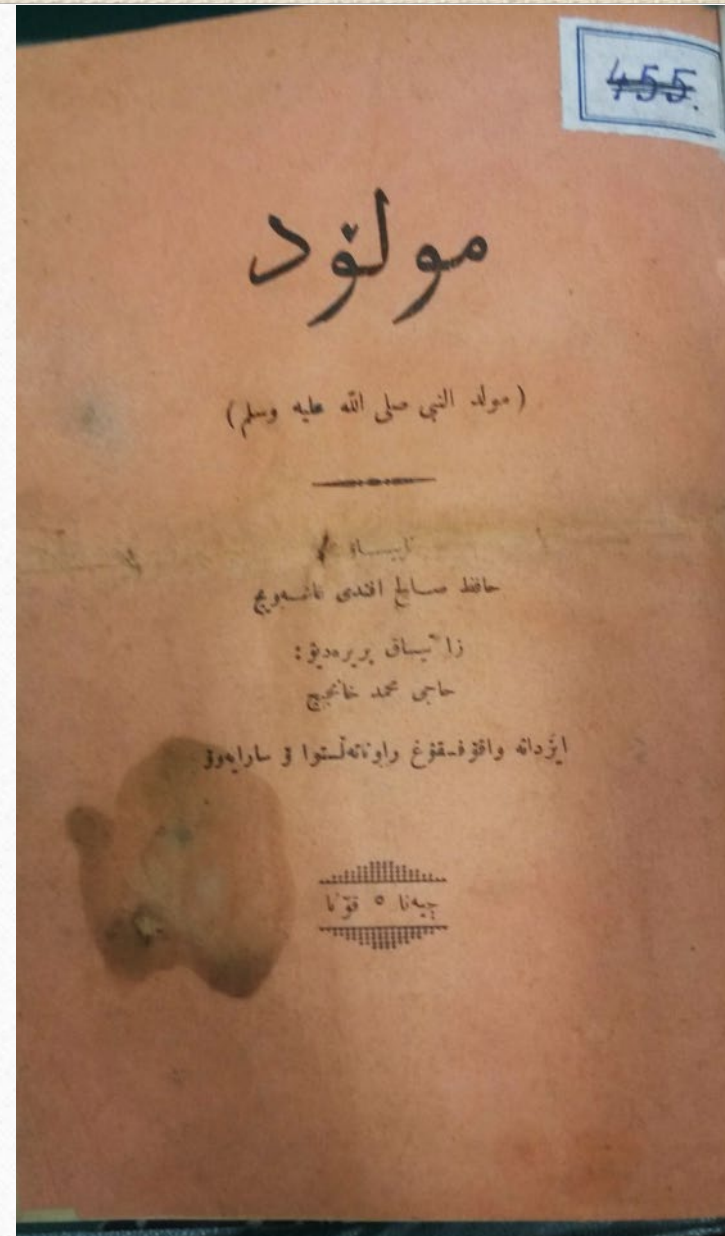 455.
مولۆد
(مولد النبى صلى اللّه عليه وسلم)
حافظ صالح افندى غاشەويچ
زا تيساق پريرەديۋ:
حاجى محمد خانجيچ
ايزدانە واقۆفسقۆغ راوناتەڵستوا ۋ سارايەوۋ
چيەنا ٥ قۆنا